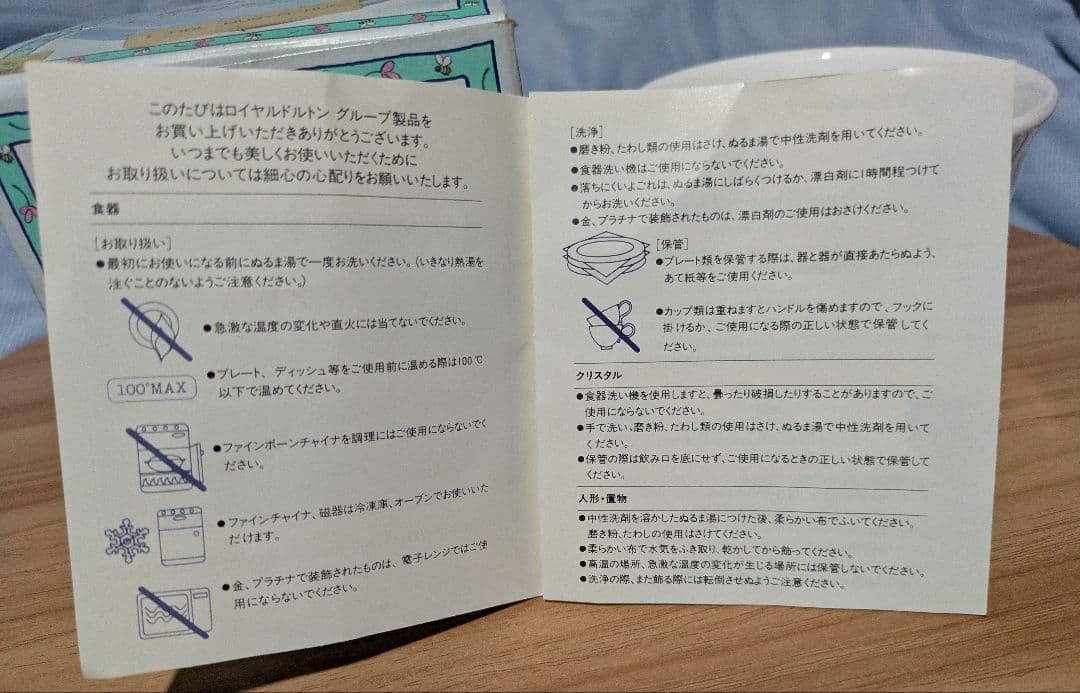 このたびはロイヤルドルトン グループ製品を
お買い上げいただきありがとうございます。
いつまでも美しくお使いいただくために
お取り扱いについては細心の心配りをお願いいたします。
食器
[お取り扱い]
●最初にお使いになる前にぬるま湯で一度お洗いください。(いきなり熱湯を
注ぐことのないようご注意ください。)
●急激な温度の変化や直火には当てないでください。
100°MAX
●プレート、ディッシュ等をご使用前に温める際は100℃
以下で温めてください。
●ファインボーンチャイナを調理にはご使用にならないでく
ださい。
●ファインチャイナ、磁器は冷凍庫、オーブンでお使いいた
だけます。
●金、プラチナで装飾されたものは、電子レンジではご使
用にならないでください。
[洗浄]
●磨き粉、たわし類の使用はさけ、ぬるま湯で中性洗剤を用いてください。
●食器洗い機はご使用にならないでください。
●落ちにくいよごれは、ぬるま湯にしばらくつけるか、漂白剤に1時間程つけて
からお洗いください。
●金、プラチナで装飾されたものは、漂白剤のご使用はおさけください。
[保管]
●プレート類を保管する際は、器と器が直接あたらぬよう、
あて紙等をご使用ください。
●カップ類は重ねますとハンドルを傷めますので、フックに
掛けるか、ご使用になる際の正しい状態で保管してく
ださい。
クリスタル
●食器洗い機を使用しますと、曇ったり破損したりすることがありますので、ご
使用にならないでください。
●手で洗い、磨き粉、たわし類の使用はさけ、ぬるま湯で中性洗剤を用いて
ください。
●保管の際は飲み口を底にせず、ご使用になるときの正しい状態で保管して
ください。
人形・置物
●中性洗剤を溶かしたぬるま湯につけた後、柔らかい布でふいてください。
磨き粉、たわしの使用はさけてください。
●柔らかい布で水気をふき取り、乾かしてから飾ってください。
●高温の場所、急激な温度の変化が生じる場所には保管しないでください。
●洗浄の際、また飾る際には転倒させぬようご注意ください。